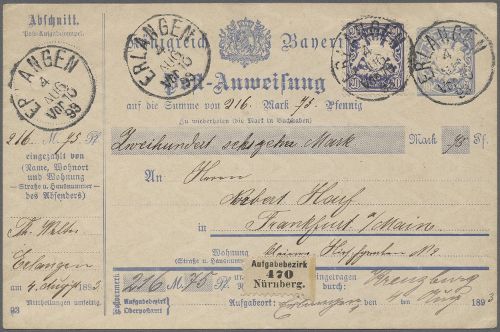 Abschnitt.
Post-Aufgabestempel.
Königreich Bayern
ERLANGEN
4
AUG
93
ERLANGEN
4
AUG
93
ERLANGEN
4
ERLANGEN
4
Post-Anweisung
auf die Summe von 216 Mark 75 Pfennig
Zu wiederholen (die Mark in Buchstaben)
216 M. 75 Pf.
Zweihundert sechzehn Mark Mark 75 Pf.
eingezahlt von
(Name, Wohnort
und Wohnung
Straße u. Hausnummer
des Absenders)
An Herrn
Robert Hauf
in Frankfurt a/Main
Wohnung
(Straße u. Hausnummer)
Erlangen
am 4 Aug 1893
Mittheilungen umseitig.
93
216 M. 75 Pf.
Aufgabebezirk
Oberpostamt
Aufgabebezirk
470
Nürnberg.
eingetragen
durch:
Aufgabeort: Erlangen den 4 Aug 1893